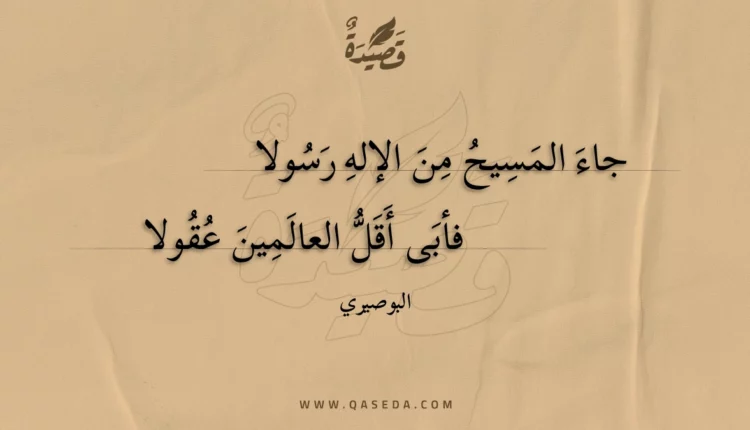 قَصِيْدَةٌ
جاءَ المَسِيحُ مِنَ الإلهِ رَسُولا
فأبَى أَقَلُّ العالَمِينَ عُقُولا
البوصيري
WWW.QASEDA.COM